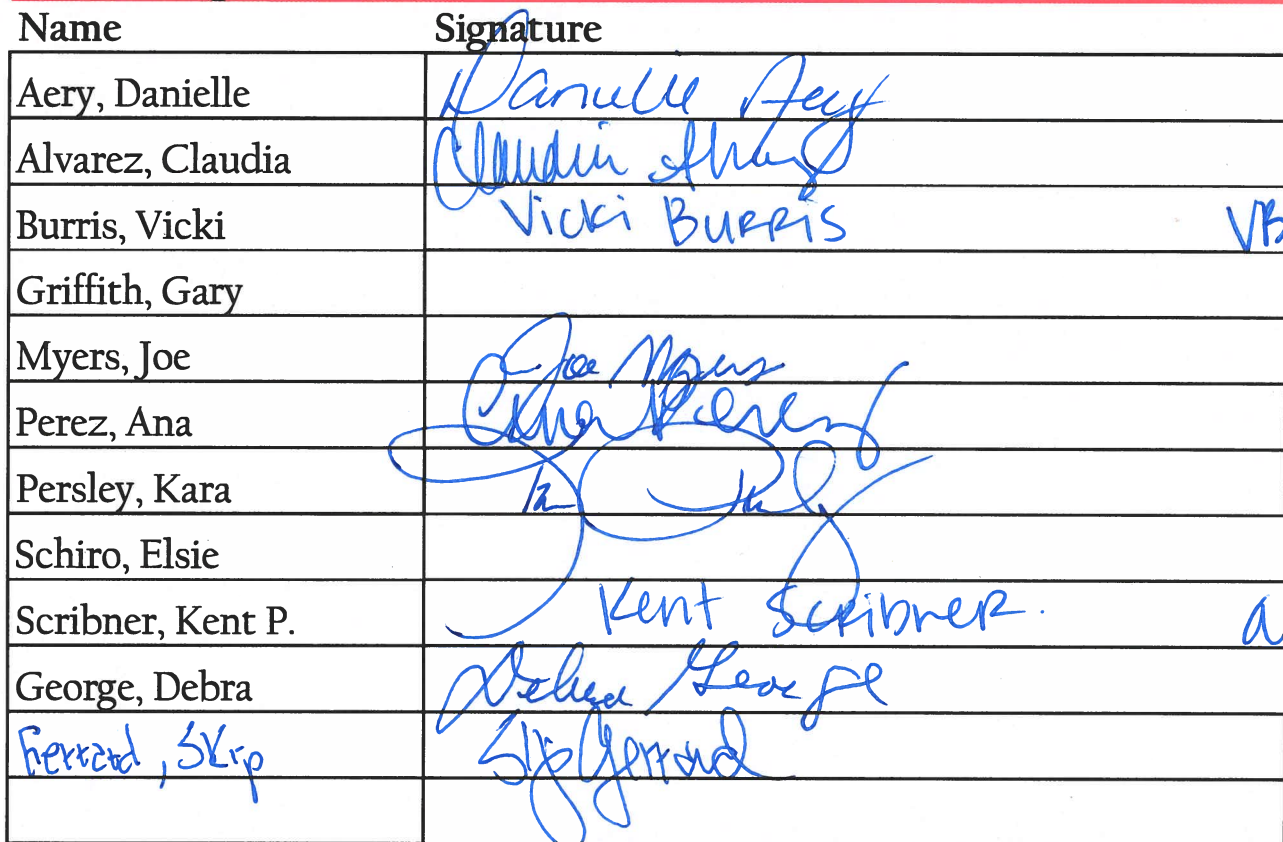 Name Signature
Aery, Danielle Danielle Aery
Alvarez, Claudia Claudia Alvarez
Burris, Vicki Vicki BURRiS VB
Griffith, Gary
Myers, Joe Joe Myers
Perez, Ana Ana Perez
Persley, Kara
Schiro, Elsie
Scribner, Kent P. Kent Scribner.
George, Debra Debra George
Gerrard, Skip Skip Gerrard